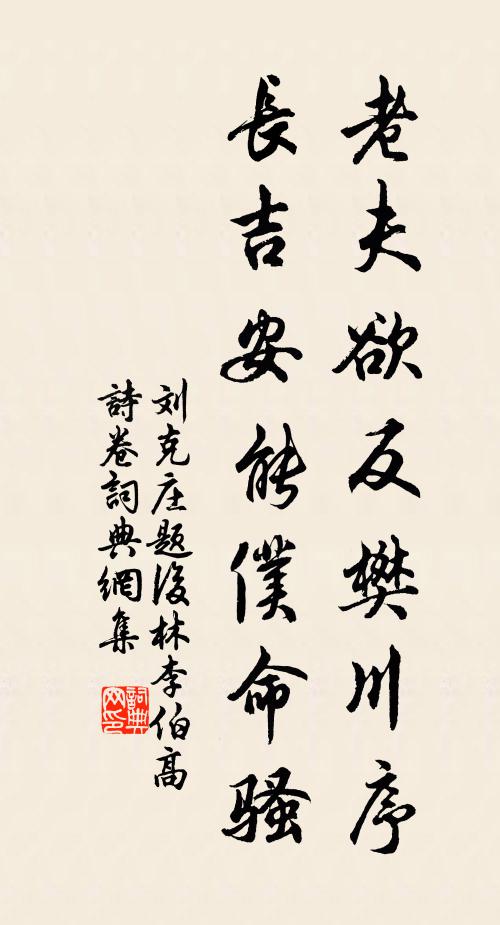 老夫欲反樊川序
長吉安能僕命騷
刘克庄題後林李伯高
詩卷詞典網集
詞典网印